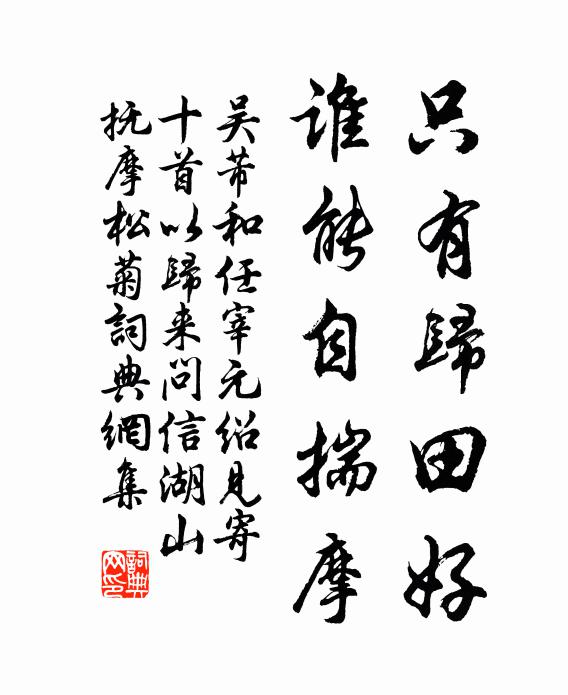 只有歸田好
誰能自揣摩
吴芾和任宰元绍見寄
十首以歸来問信湖山
抚摩松菊詞典網集
詞典網印